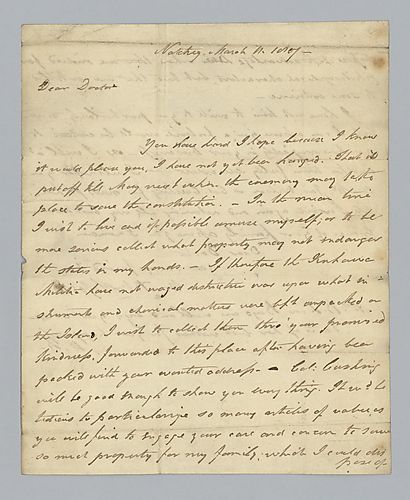 Natchez March 11. 1807 —
Dear Doctor
You have heard I hope because I know
it would please you, I have not yet been hanged. That is
put off till May next when the ceremony may take
place to save the constitution. — In the mean time
I wish to live and if possible amuse myself; or to be
more serious collect what property may not endanger
the states in my hands. — If therefore the Kanhawa
Militia have not waged destructive war upon what in-
struments and chemical matters were left unpacked on
the Island, I wish to collect them thro your promised
kindness, forwarded to this place after having been
packed with your wonted address. — Col: Cushing
will be good enough to show you every thing. It wd be
tedious to particularize so many articles of value as
you will find to engage your care and concern to save
so much property for my family, which I could dis
pose of